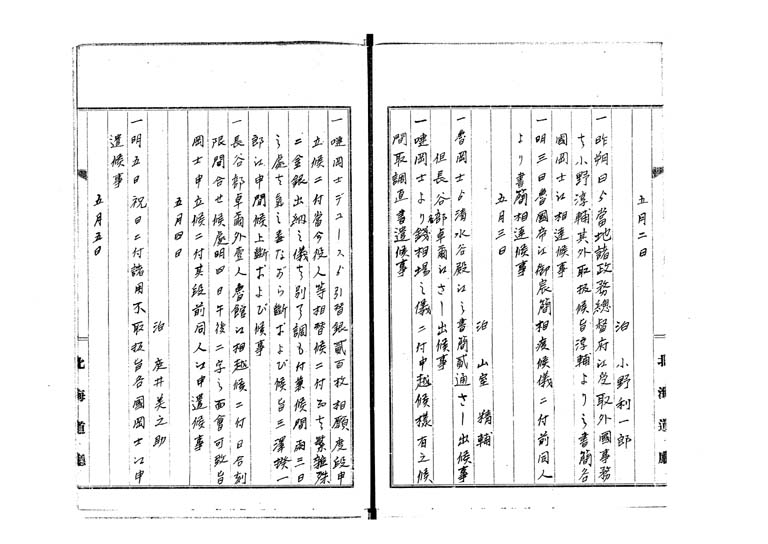 五月二日
泊 小野利一郎
一昨朔日ゟ当地諸政務総督府江受取外国事務
ち小野淳輔其外取扱候台淳輔より之書簡各
国岡士江相達候事
一明三日魯国帝江御宸簡相渡候儀ニ付前同人
より書簡相達候事
五月三日
泊 山室 精輔
一魯岡士ゟ清水谷殿江之書簡貳通さし出候事
但長谷部卓爾江さし出候事
一嗹岡士より銭相場之儀ニ付申越候様有之候
間取調直書遣候事
一嗹岡士デュースゟ引替銀貳百枚相願度段申
立候ニ付当今役人等相替候ニ付而ち繁雑殊
ニ金銀出納之儀ち別而調も付兼候間両三日
之處ち氣之毒ながら断および候台三澤揆一
郎江申聞候上断および候事
一長谷部卓爾外壹人魯館江相越候ニ付日合刻
限問合せ候處明四日午後二字之面會可致旨
岡士申立候ニ付其段前同人江申遣候事
五月四日
泊 庭井美之助
一明五日祝日ニ付諸用不取扱旨各国岡士江申
遣候事
五月五日
北海道廳
北海道廳